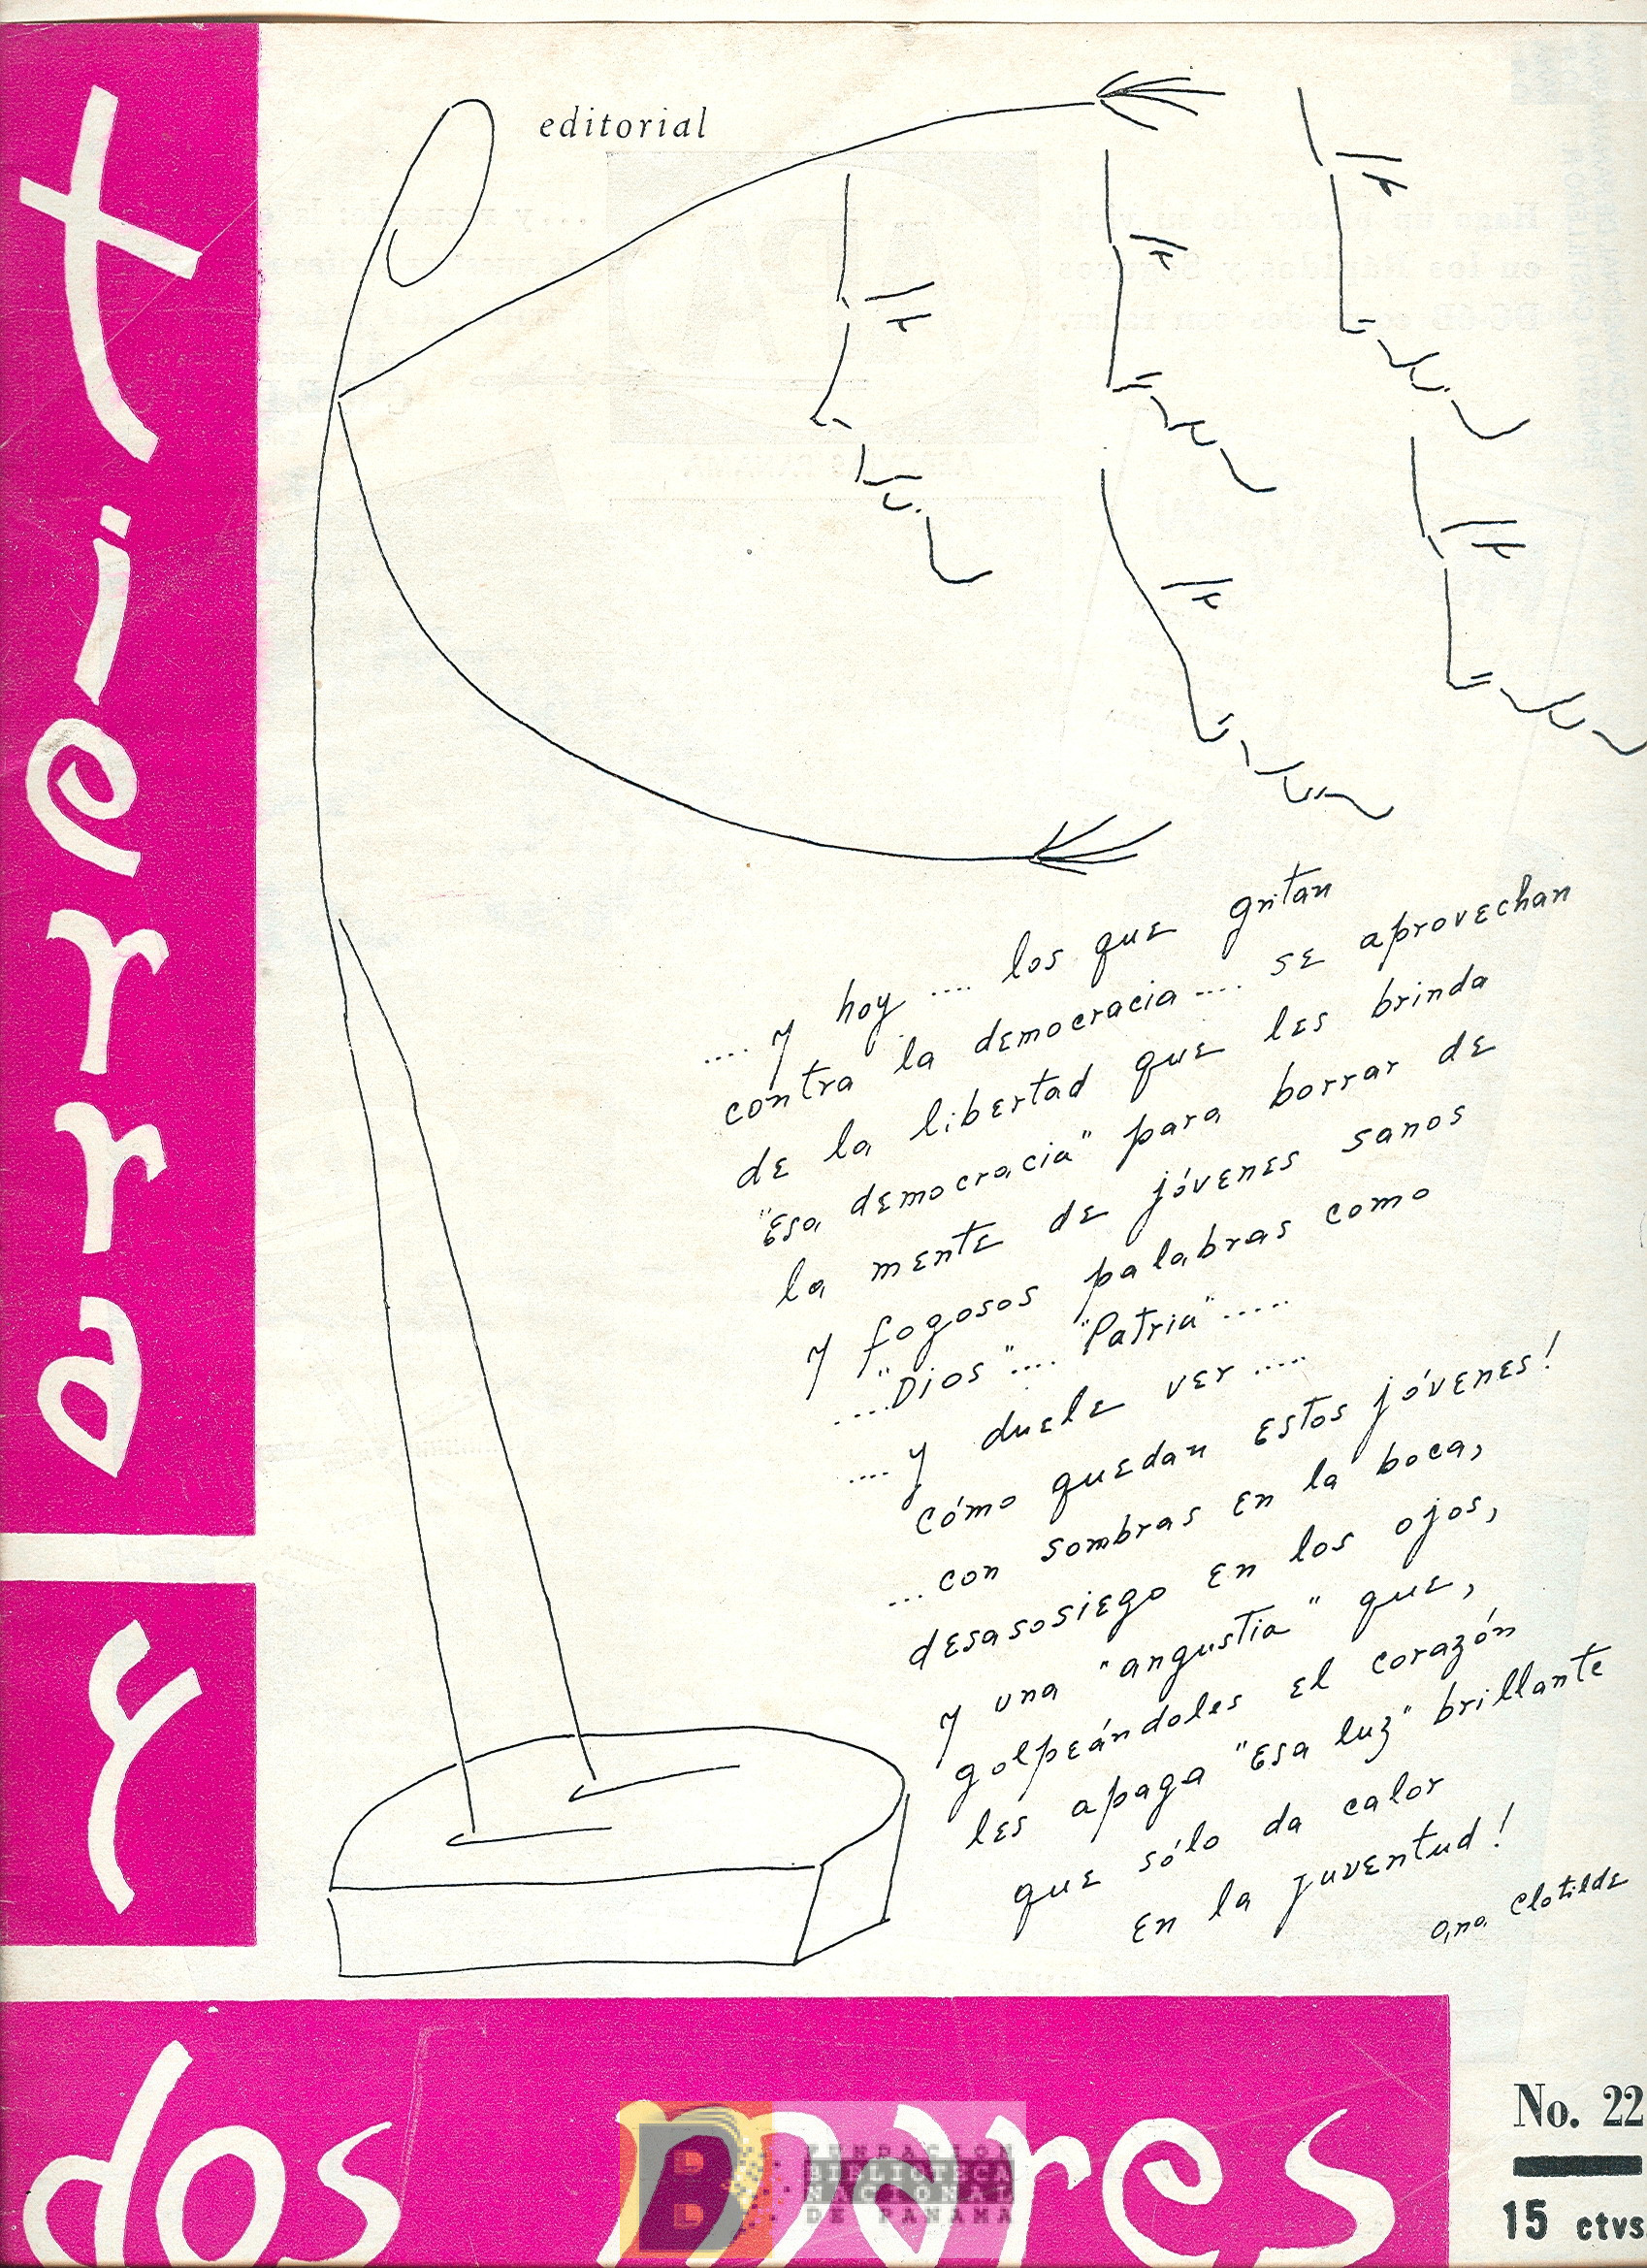 tierra
y
dos mares
editorial
.... y hoy .... los que gritan
contra la democracia .... se aprovechan
de la libertad que les brinda
"esa democracia" para borrar de
la mente de jóvenes sanos
y fogosos palabras como
...."Dios".... "Patria".....
....y duele ver .....
cómo quedan estos jóvenes!
...con sombras en la boca,
desasosiego en los ojos,
y una "angustia" que,
golpeándoles el corazón
les apaga "esa luz" brillante
que sólo da calor
en la juventud!
ana Clotilde
No. 22
15 ctvs
FUNDACION
BIBLIOTECA
NACIONAL
DE PANAMA